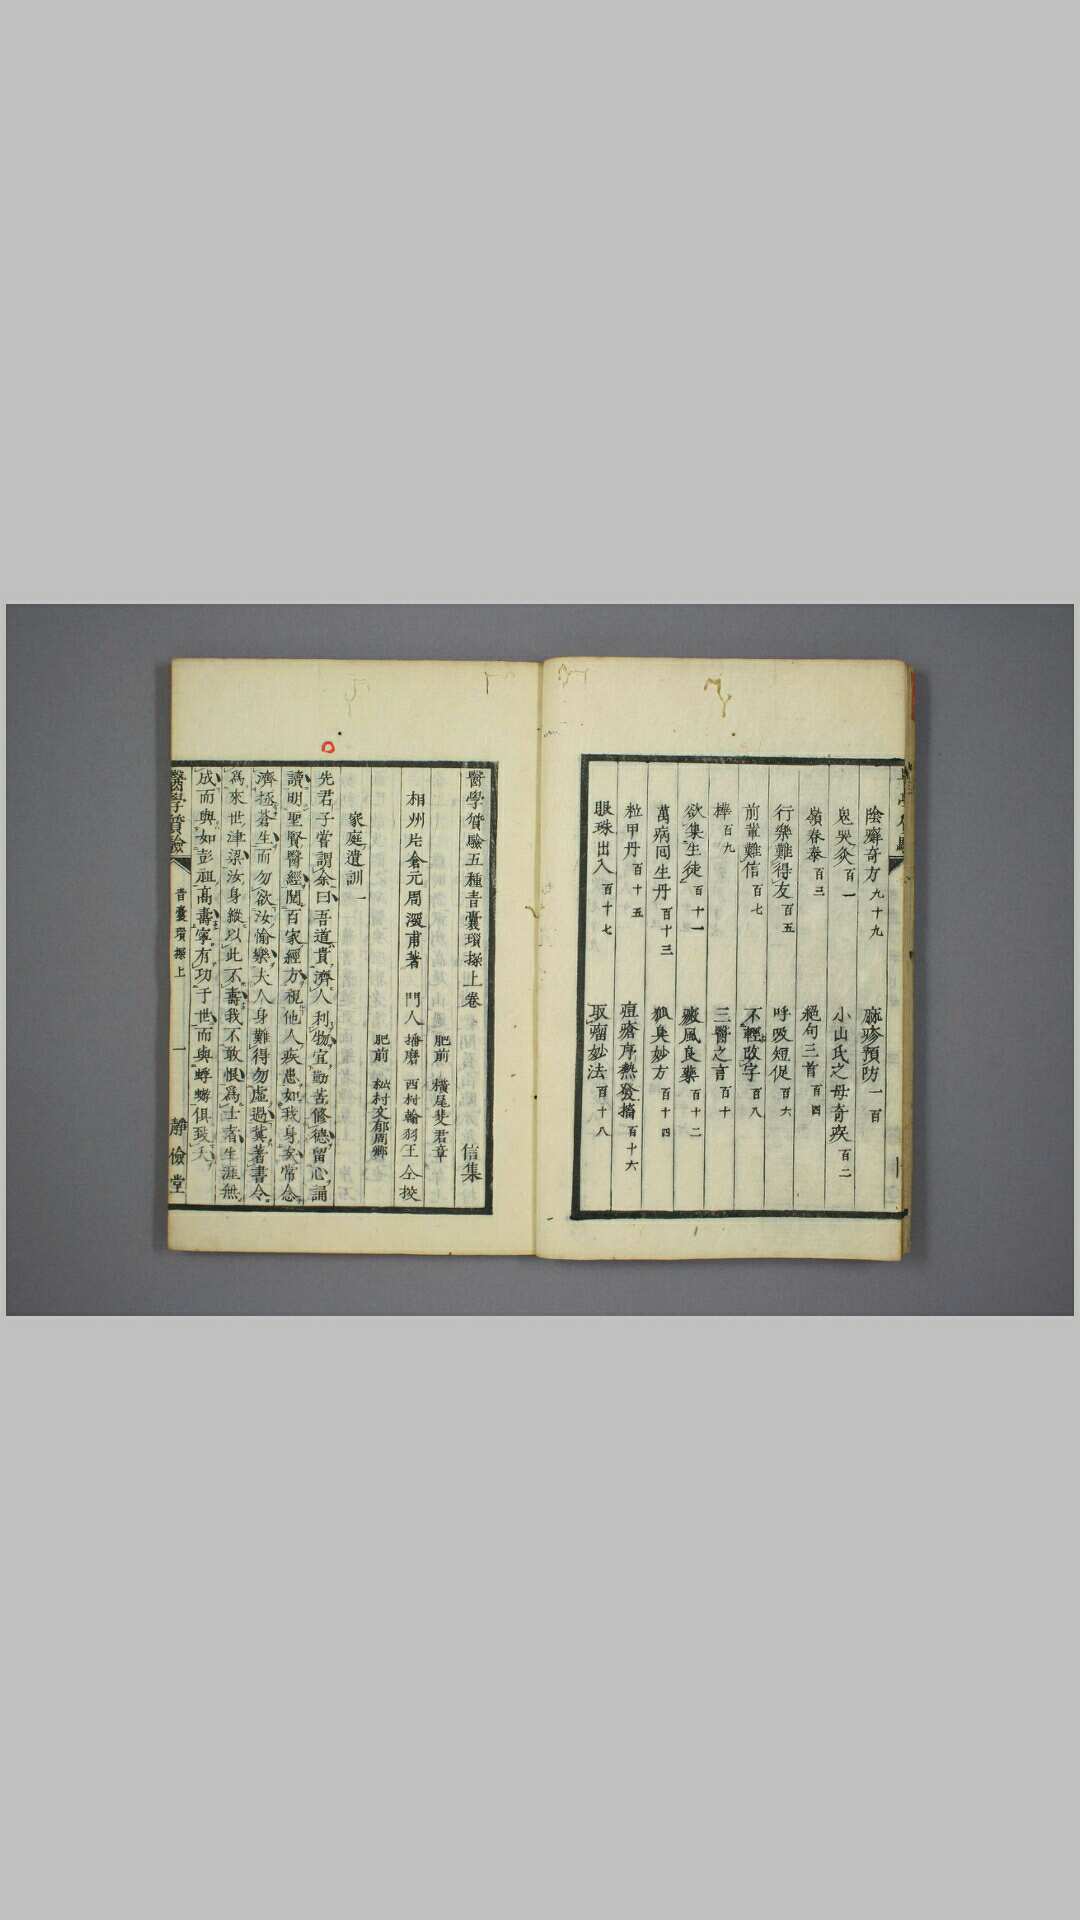 陰癬奇方九十九 麻疹預防一百
兒哭灸百一 小山氏之母奇疾百二
嶺春泰百三 絕句三首百四
行樂難得友百五 呼吸短促百六
前輩難信百七 不輕改字百八
棒百九 三醫之言百十
欲集生徒百十一 癜風良藥百十二
萬病回生丹百十三 狐臭妙方百十四
粒甲丹百十五 痘瘡序熱發搐百十六
眼珠出入百十七 取瘤妙法百十八
醫學質驗五種青囊瑣探上卷 信集
肥前 橫尾斐君章
相州片倉元周深甫著 門人播磨 西村翰羽王仝挍
肥前 松村文郁周鄉
家庭遺訓一
先君子嘗謂余曰吾道貴濟人利物宜勤苦修德留心誦
讀明聖賢醫經閱百家經方視他人疾患如我身哀常念
濟拯蒼生而勿欲汝愉樂夫人身難得勿虛過冀著書令
爲來世津梁汝身縱以此不壽我不敢恨爲士者生涯無
成而與如彭祖高壽寧有功于世而與蜉蝣俱致夭
醫學質驗 青囊瑣探上 一 靜儉堂